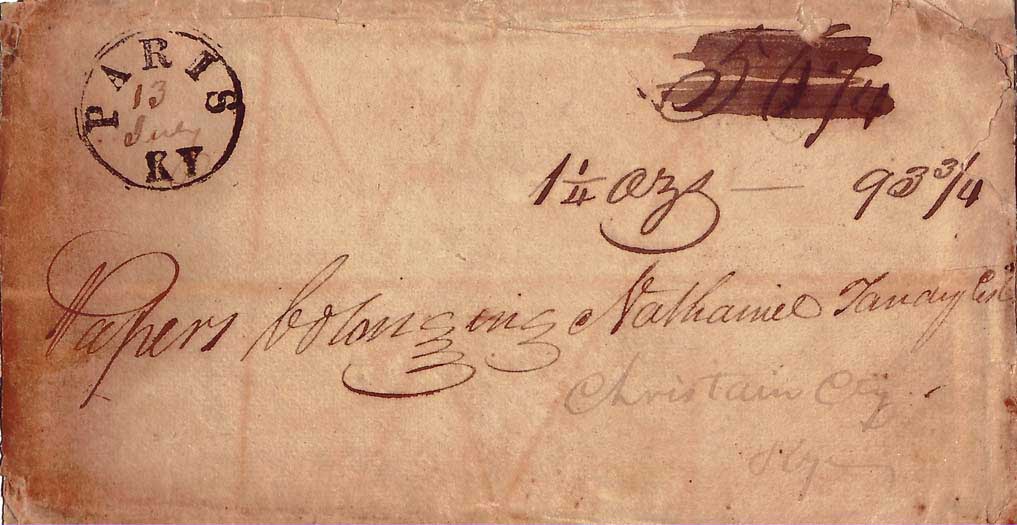 PARIS
13
July
KY
1 1/4 ozs — 93 3/4
Papers belonging Nathaniel Tandy Est
Christain Cty
Ky